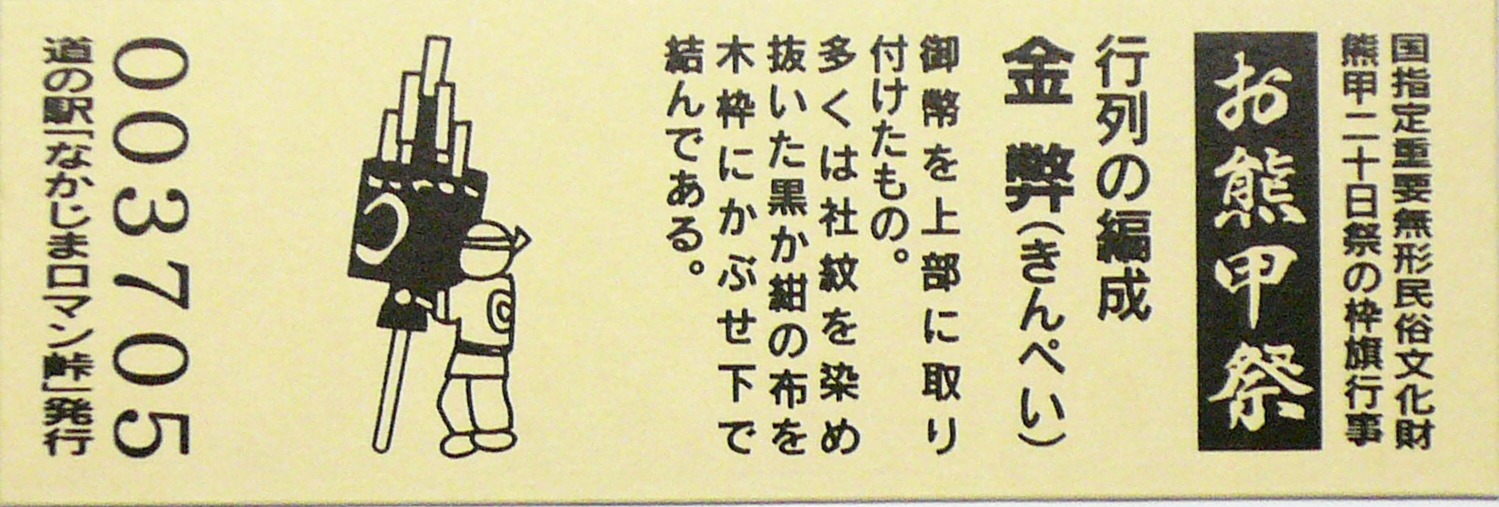 国指定重要無形民俗文化財
熊甲二十日祭の枠旗行事
お熊甲祭
行列の編成
金弊(きんぺい)
御幣を上部に取り
付けたもの。
多くは社紋を染め
抜いた黒か紺の布を
木枠にかぶせ下で
結んである。
003705
道の駅「なかじまロマン峠」発行